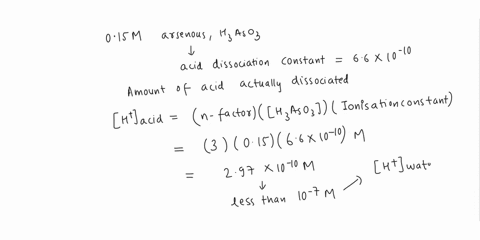 0.15M arsenous, H₃AsO₃
↓
acid dissociation constant = 6.6 × 10⁻¹⁰
Amount of acid actually dissociated
[H⁺]acid = (n-factor)([H₃AsO₃])(Ionisation constant)
= (3)(0.15)(6.6×10⁻¹⁰) M
= 2.97 × 10⁻¹⁰ M
↓
less than 10⁻⁷ M → [H⁺]wat